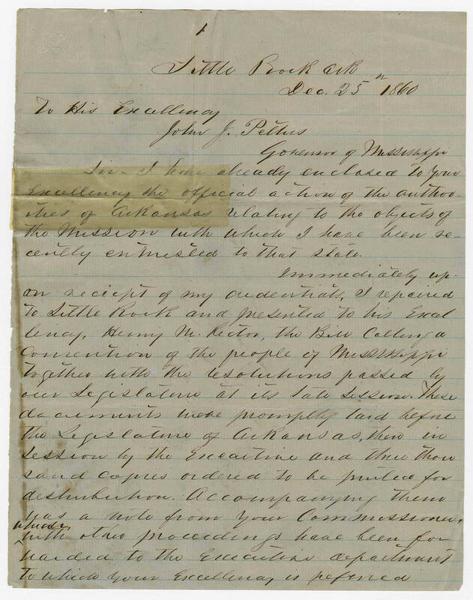 1
Little Rock Ark
Dec. 25th 1860
To His Excellency
John J. Pettus
Governor of Mississippi
Sir- I have already enclosed to your
Excellency the official action of the author-
ities of Arkansas relating to the objects of
the Mission with which I have been re-
cently entrusted to that State.
Immediately up-
on receipt of my credentials, I repaired
to Little Rock and presented to his Excel-
lency, Henry M. Rector, the Bill Calling a
Convention of the people of Mississippi
together with the resolutions passed by
our Legislature at its late session. These
documents were promptly laid before
the Legislature of Arkansas, then in
session by the Executive and three thou
sand copies ordered to be printed for
distribution. Accompanying them
was a note from your Commissioner,
which
with other proceedings have been for-
warded to the Executive department
to which your Excellency is refered